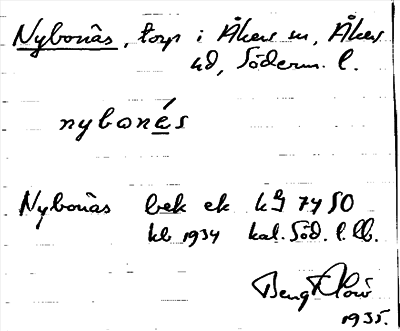 Nybonäs, torp i Åkers sn, Åkers
hd, Söderm. l.
nybonés
Nybonäs bek ek kG 74 SO
kb 1934 kal. Söd. l. lb.
1935.